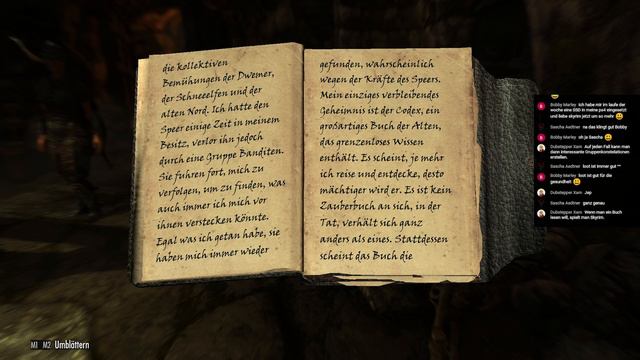 die kollektiven
Bemühungen der Dwemer,
der Schneeelfen und der
alten Nord. Ich hatte den
Speer einige Zeit in meinem
Besitz, verlor ihn jedoch
durch eine Gruppe Banditen.
Sie fuhren fort, mich zu
verfolgen, um zu finden, was
auch immer ich mich vor
ihnen verstecken könnte.
Egal was ich getan habe, sie
haben mich immer wieder
gefunden, wahrscheinlich
wegen der Kräfte des Speers.
Mein einziges verbleibendes
Geheimnis ist der Codex, ein
großartiges Buch der Alten,
das grenzenloses Wissen
enthält. Es scheint, je mehr
ich reise und entdecke, desto
mächtiger wird er. Es ist kein
Zauberbuch an sich, in der
Tat, verhält sich ganz
anders als eines. Stattdessen
scheint das Buch die
Bobby Marley ich habe mir im laufe der
woche eine SSD in meine ps4 eingesetzt
und liebe skyrim jetzt um so mehr
Sascha Aedtner na das klingt gut Bobby
Bobby Marley oh ja Sascha
Dubstepper Xam Auf jeden Fall kann man
dann interessante Gruppenkonstelationen
erstellen.
Sascha Aedtner loot ist immer gut ^^
Bobby Marley loot ist gut für die
gesundheit
Dubstepper Xam Jep
Sascha Aedtner ganz genau
Dubstepper Xam Wenn man ein Buch
lesen will, spielt man Skyrim.
M1 M2 Umblättern